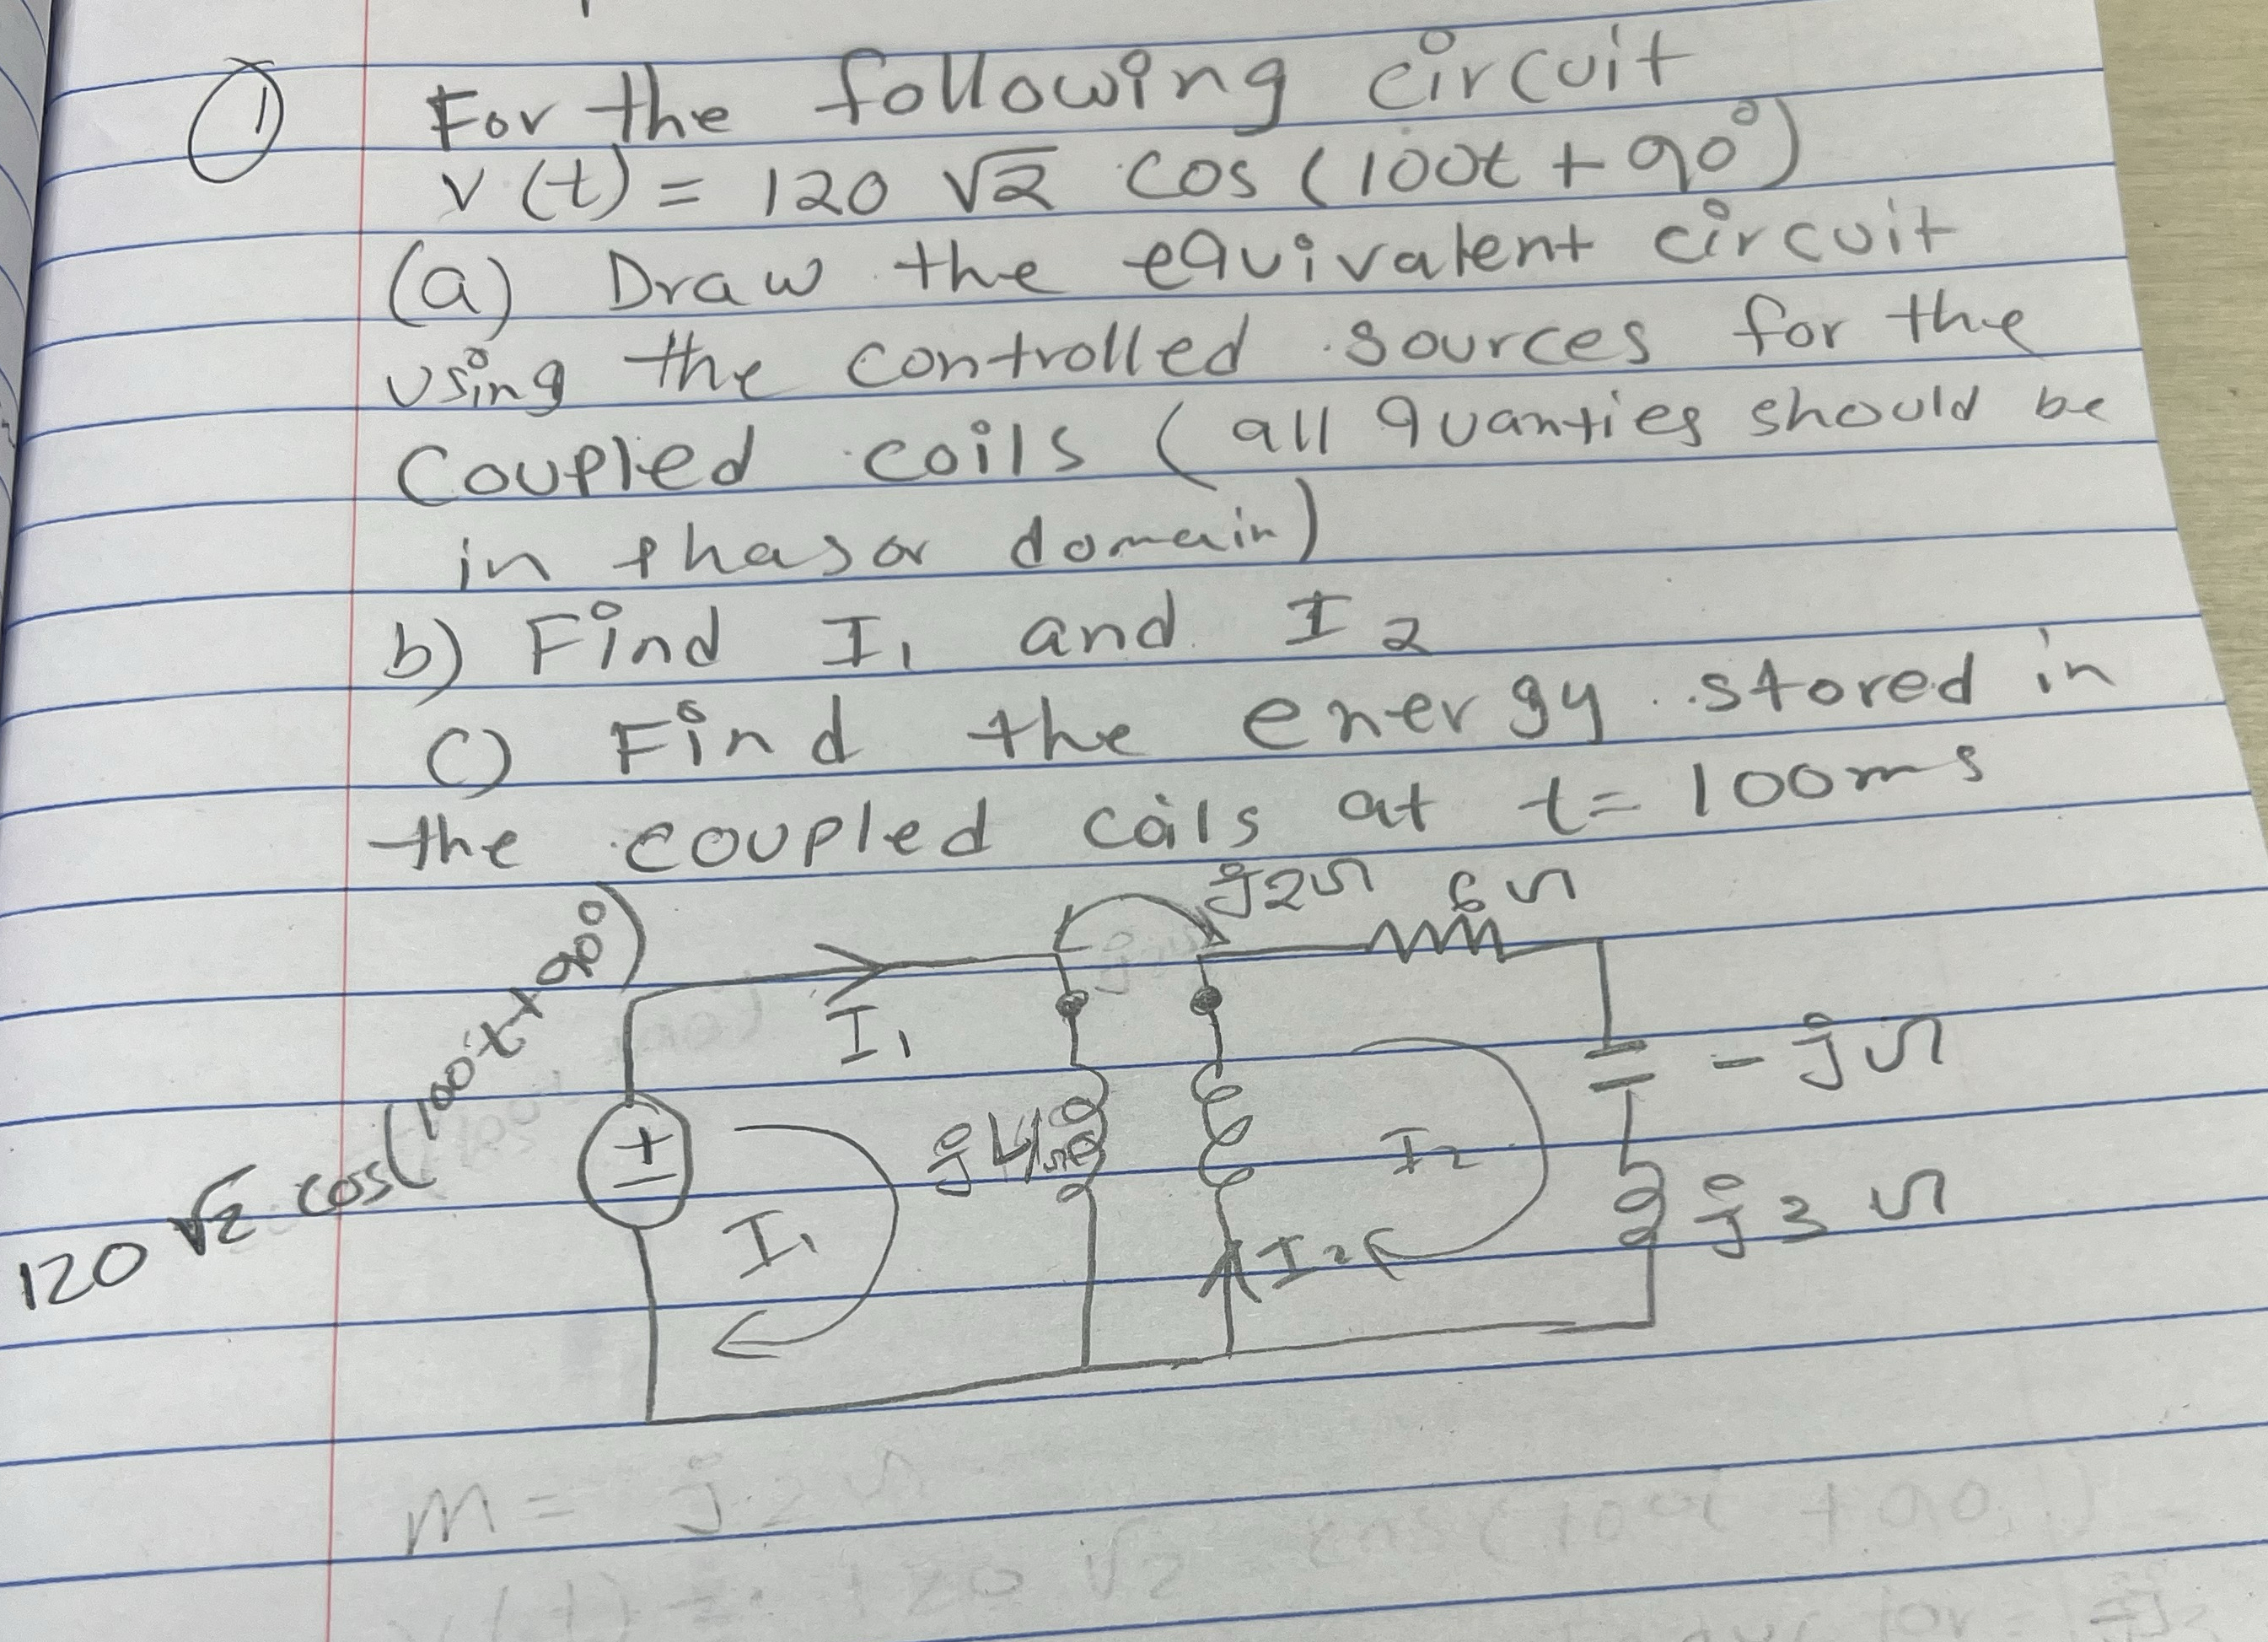 ① For the following circuit
v(t) = 120 √2 cos (100t + 90°)
(a) Draw the equivalent circuit
using the controlled sources for the
Coupled coils (all quanties should be
in phasor domain)
b) Find I₁ and I₂
c) Find the energy stored in
the coupled coils at t = 100ms
j2Ω 6Ω
120 √2 cos(100t+90°)
I₁
-jΩ
+
−
j4Ω
I₂
I₁
I₂
j3Ω
M = j2Ω